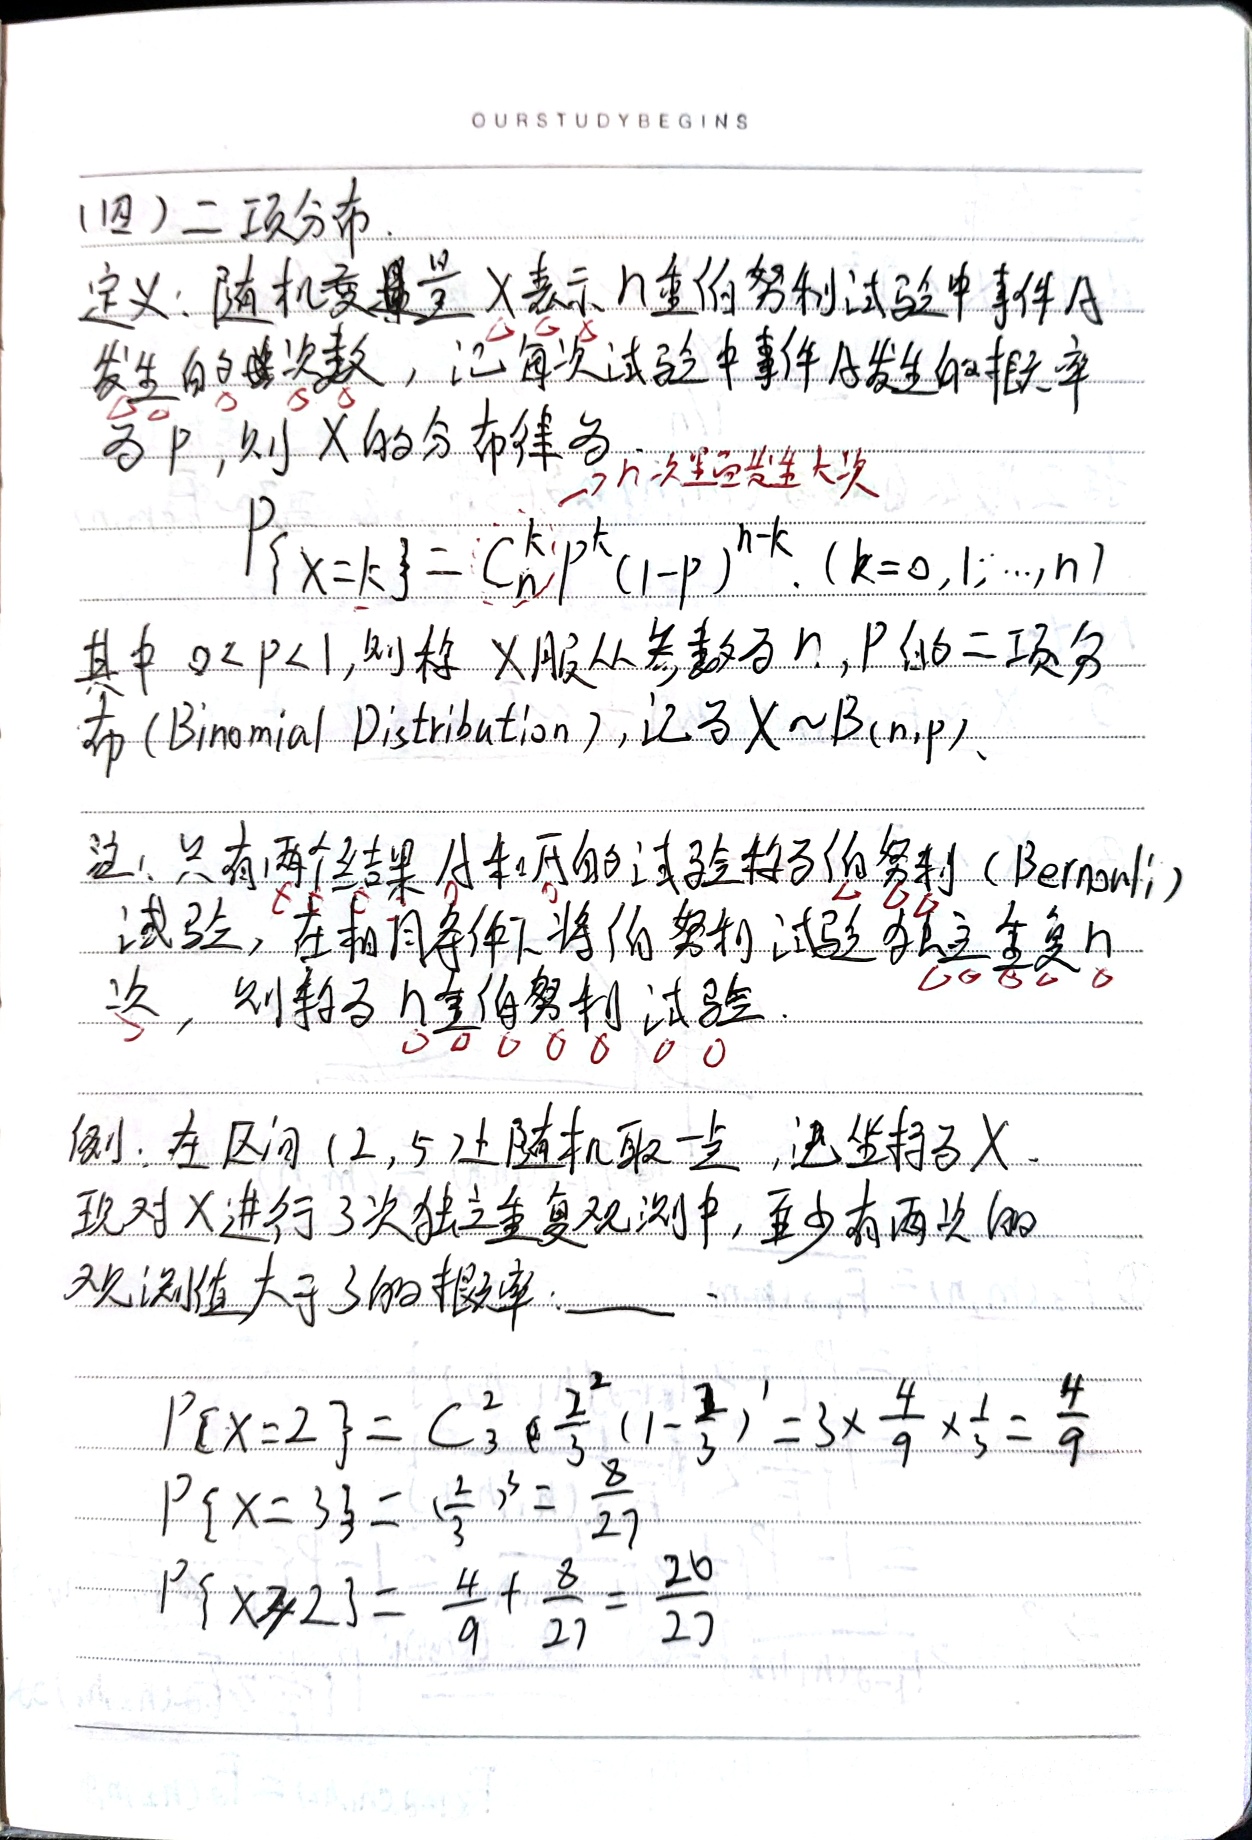 OURSTUDYBEGINS
(四)二项分布.
定义:随机变量 X表示 n重伯努利试验中事件A
发生的次数,记每次试验中事件A发生的概率
为 P,则 X的分布律为
→n次里面发生k次
P{X=k}=C_n^k p^k (1-p)^{n-k}. (k=0,1,…,n)
其中 0<p<1,则称 X服从参数为n,P的二项分
布(Binomial Distribution),记为X~B(n,p).
注:只有两个结果 A和Ā的试验称为伯努利(Bernouli)
试验,在相同条件下将伯努利试验独立重复n
次,则称为n重伯努利试验.
例:在区间(2,5)上随机取一点,记坐标为X.
现对X进行3次独立重复观测中,至少有两次的
观测值大于3的概率.____.
P{X=2}=C_3^2 (2/3)^2 (1-2/3)^1=3×4/9×1/3=4/9
P{X=3}=(2/3)^3=8/27
P{X≥2}=4/9+8/27=20/27